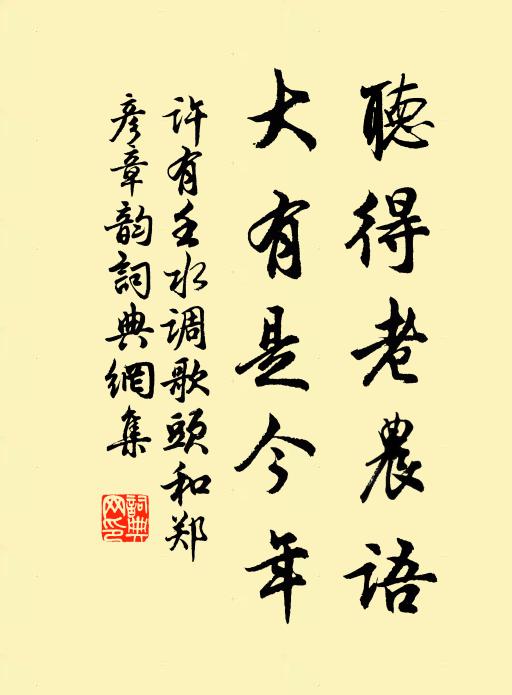 聽得老農語
大有是今年
许有壬水调歌頭和郑
彦章韵詞典網集
詞典網印